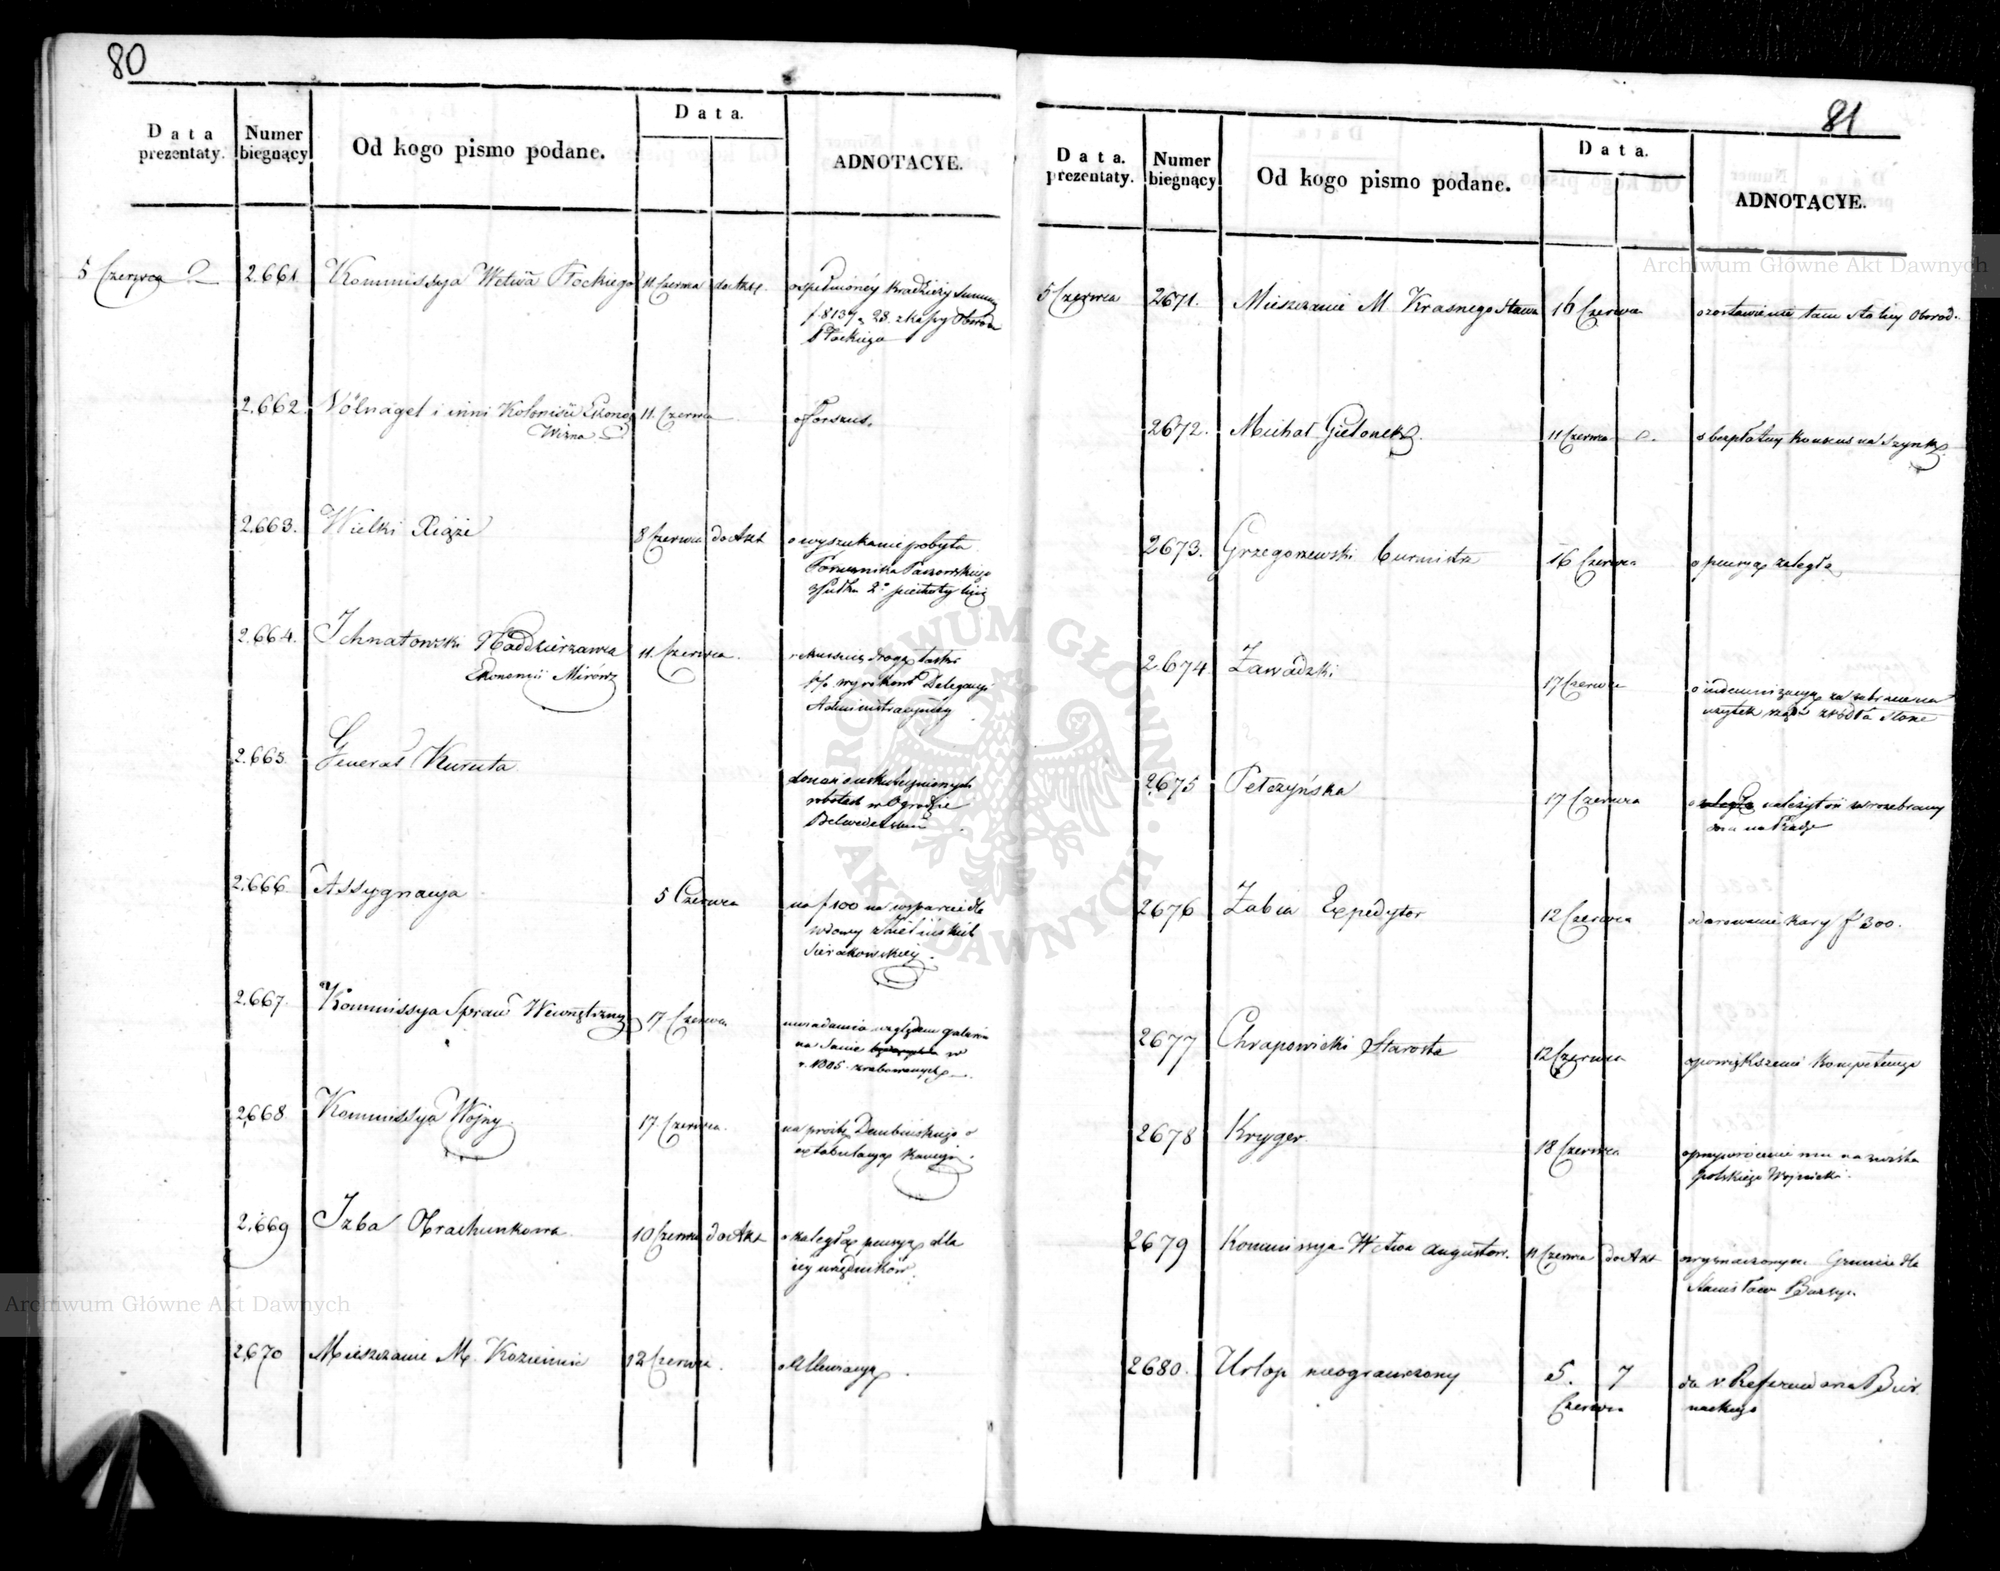 80
Data prezentaty.
Numer biegnący
Od kogo pismo podane.
Data.
ADNOTACYE.
5 Czerwca
2.661.
Kommissya Wctwa Płockiego
11 Czerwca
do Akt.
o spełnionéy kradzieży Summy
f. 8137 g. 28. z kassy Obwodu
Płockiego
2.662.
Völnagel i inni Koloniści Ekono.
Wizna
11. Czerwca
o Forszus.
2.663.
Wielki Xiąże
8 Czerwca
do Akt
o wyszukanie pobytu
Porucznika
z Pułku 2° piechoty
2.664.
Ichnatowski Naddzierzawca
Ekonomii Mirów
11. Czerwca.
drogą łaski
Delegacyi
Administracyjney
2.665.
Generał Kuruta
donosi o uskutecznionych
robotach w Ogrodzie
Belwederskim
2.666.
Assygnacya
5 Czerwca
na f 100 na wsparcie dla
wdowy
Sierakowskiey.
2.667.
Kommissya Spraw Wewnętrzny
17. Czerwca
uwiadamia względem galarów
na Sanie w
r. 1805. zrabowanych
2.668
Kommissya Wojny.
17. Czerwca.
na prośbę Dembińskiego o
extabulacyą kaucyi.
2.669
Izba Obrachunkowa.
10 Czerwca
do Akt
o zaległą pensyą dla
iey urzędników.
2.670
Mieszczanie M. Kazimirz
12 Czerwca.
o Allewiacyą.
81
Data. prezentaty.
Numer biegnący
Od kogo pismo podane.
Data.
ADNOTACYE.
5 Czerwca
2671.
Mieszczanie M. Krasnegostawu
16 Czerwca
o zostawienie tam stolicy Obwod.
2672.
Michał Gielonek.
11 Czerwca
o bezpłatny konsens na Szynk.
2673.
Grzegorzewski burmistrz
16 Czerwca
o pensyą zaległą
2.674
Zawadzki
17 Czerwca
o indemnizacyą za zabrane na
użytek rządu źródła słone
2.675
Pełczyńska
17 Czerwca
należytość w rozebrany
dom na Pradze
2676
Żabia Expedytor
12 Czerwca
o darowanie kary f 300.
2677
Chrapowicki Starosta
12 Czerwca
o powiększenie kompetencyi
2678
Kryger.
18 Czerwca
o przywrócenie mu nazwiska
polskiego Wojnicki.
2679
Kommissya Wctwa Augustow.
11 Czerwca
do Akt
o wyznaczonym Gruncie dla
Stanisława
2680.
Urlop nieograniczony
5.
7
Czerwca
dla r Referendarza Bier.
nackiego
Archiwum Główne Akt Dawnych
Archiwum Główne Akt Dawnych
ARCHIWUM GŁÓWNE · AKT DAWNYCH ·